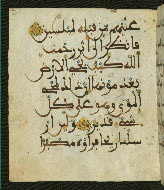 عليهم من قبله لمبلسين
فانظر الى اثر رحمت
الله كيف يحي الارض
بعد موتها ان ذلك لمحي
الموتى وهو على كل
شي قدير ولين ار
سلنا ريحا فراوه مصفرا